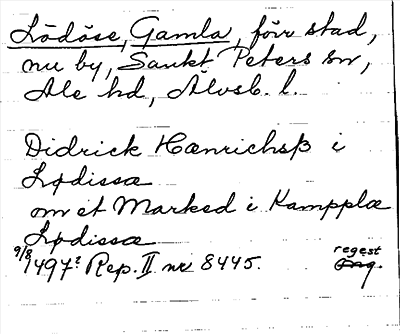 Lödöse, Gamla, förr stad,
nu by, Sankt Peters sn,
Ale hd, Älvsb. l.
Didrick Hænrichsß i
Lødissæ
om et Marked i Kampplæ
Lødissæ
9/8 1497? Rep. II nr 8445. regest